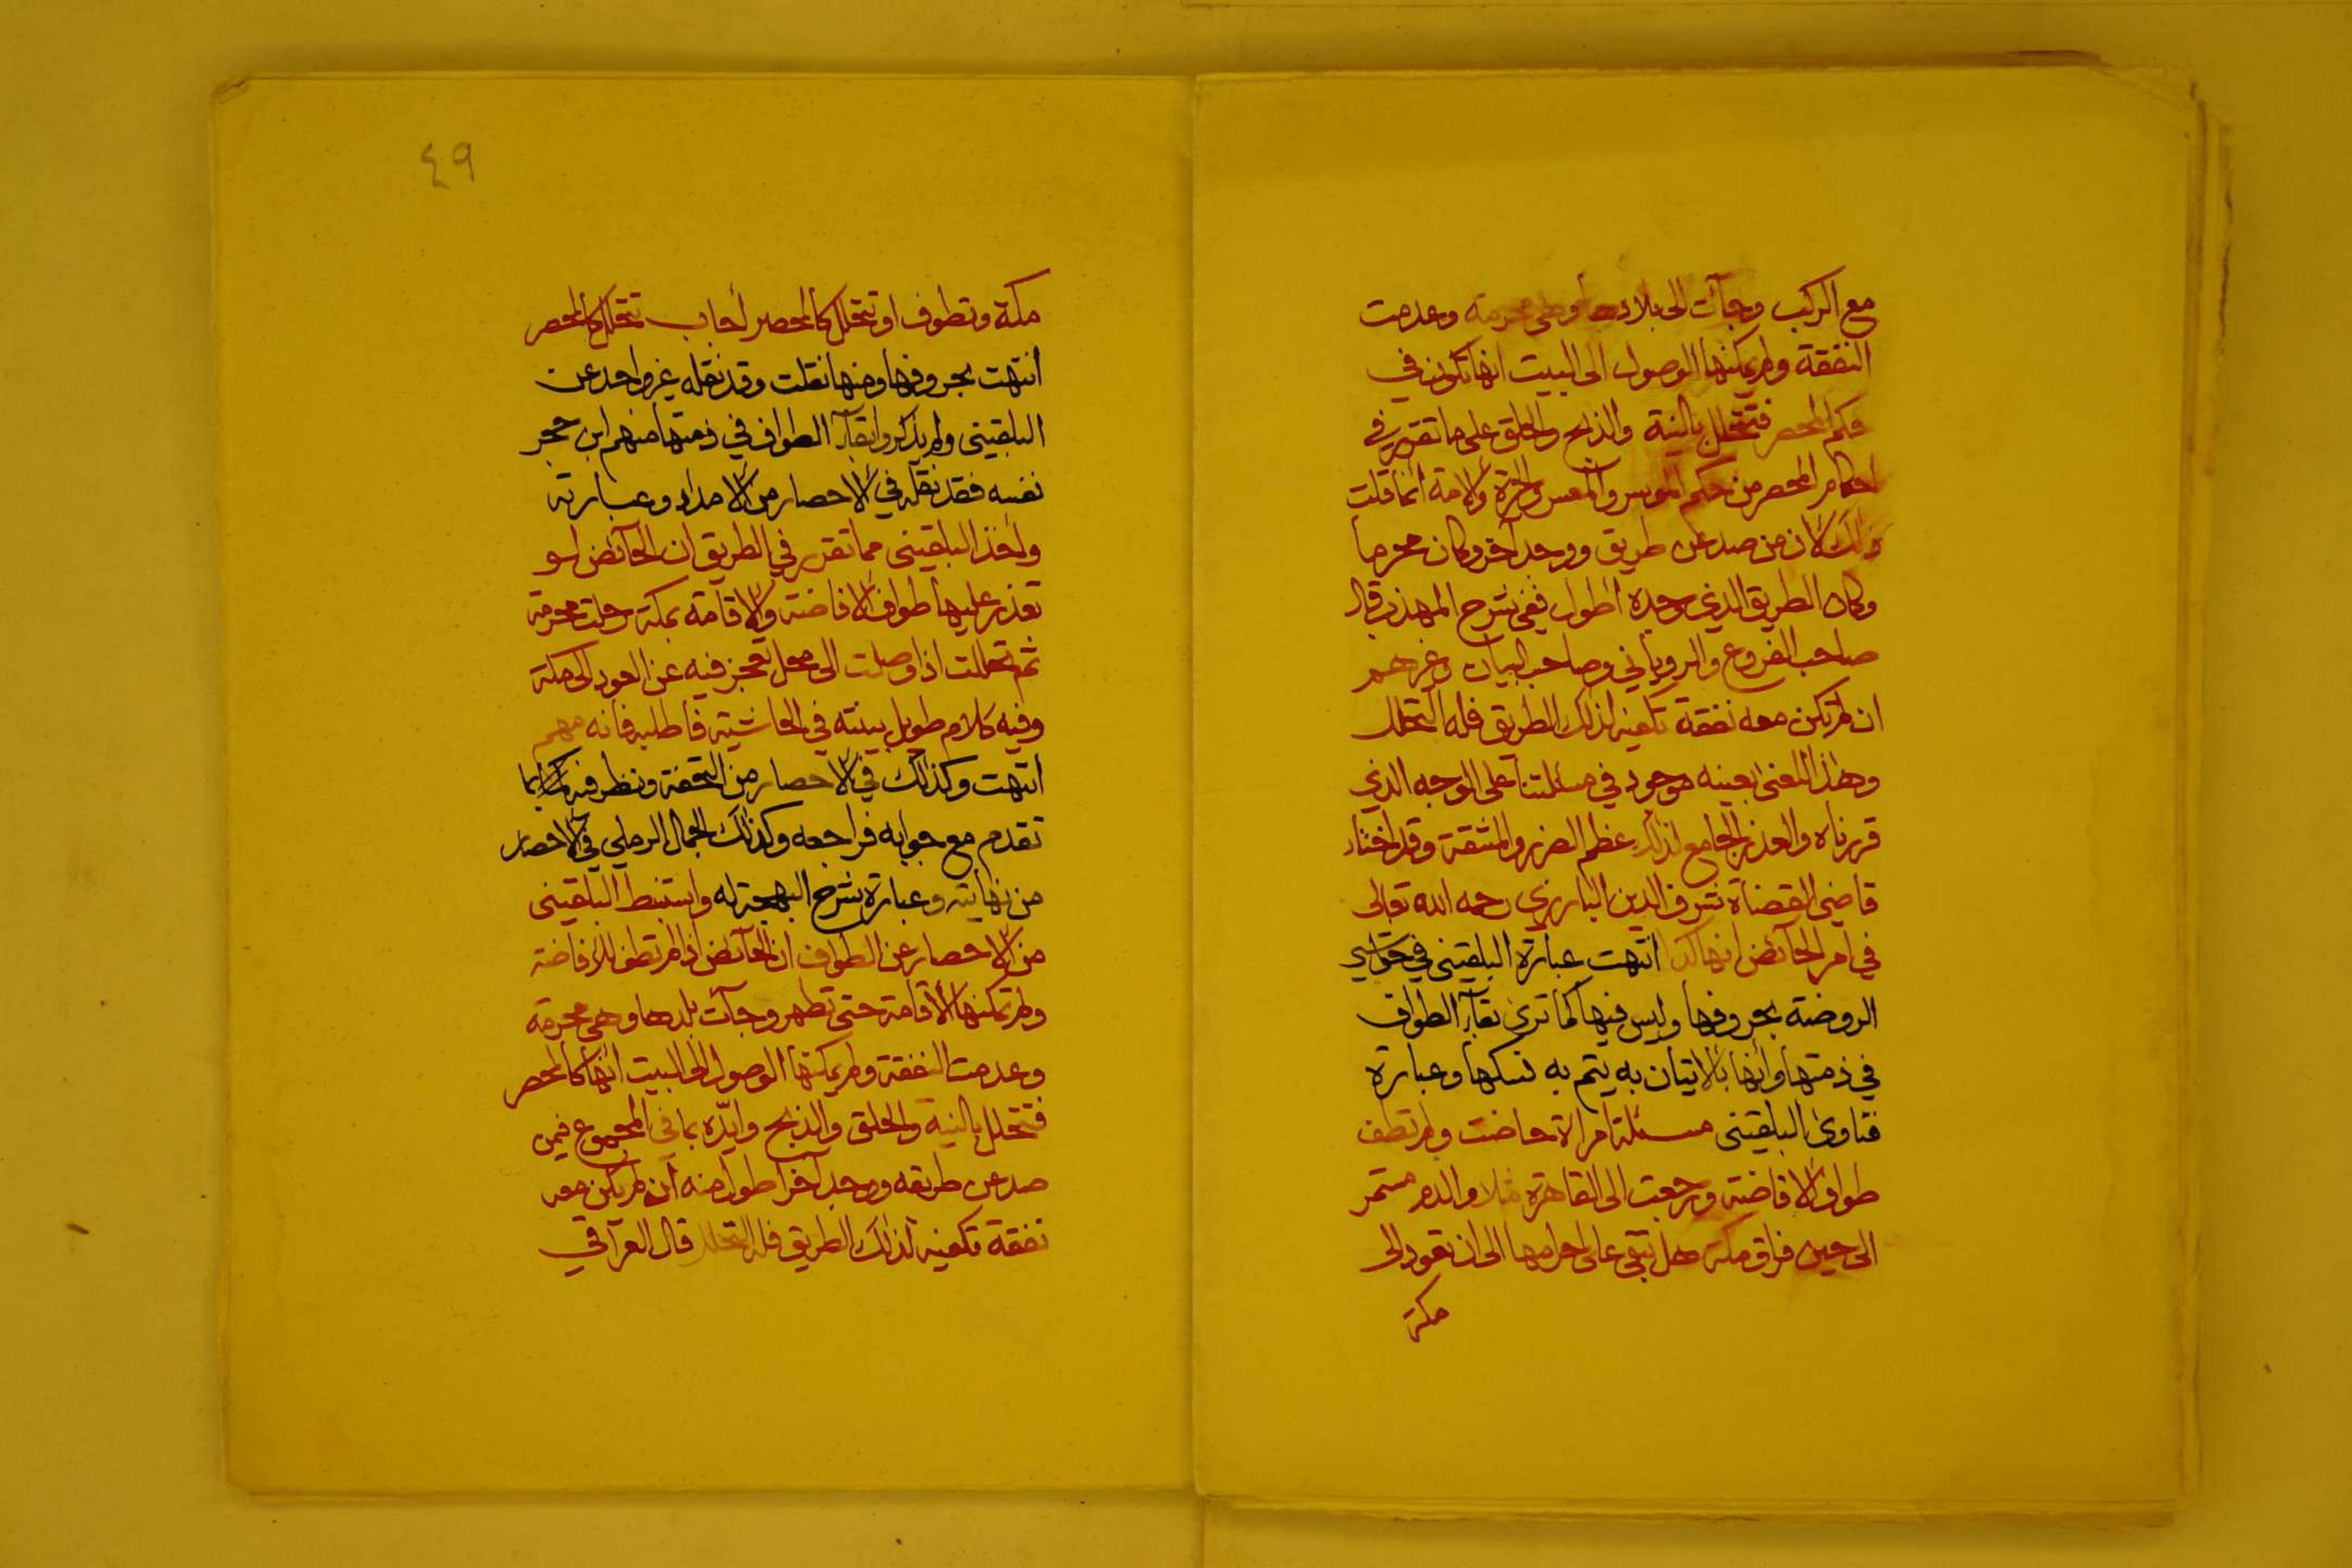 مع الركب وجآت الى بلادها وهي محرمة وعدمت
النفقة ولم يمكنها الوصول الى البيت انها تكون في
حكم المحصر فتتحلل بالنية والذبح والحلق على ما تقرر في
احكام المحصر من حكم الموسر والمعسر والحرة والامة انما قلت
ذلك لان من صد عن طريق ووجد آخر وكان محرما
وكان الطريق الذي وجده اطول ففي شرح المهذب قال
صاحب الفروع والروياني وصاحب البيان وغيرهم
ان لم يكن معه نفقة تكفيه لذلك الطريق فله التحلل
وهذا المعنى بعينه موجود في مسئلتنا على الوجه الذي
قررناه والعذر الجامع لذلك عظم الضرر والمشقة وقد اختار
قاضي القضاة شرف الدين البارزي رحمه الله تعالى
في امر الحائض انها كذا انتهت عبارة البلقيني في حواشي
الروضة بحروفها وليس فيها كما ترى بقآء الطواف
في ذمتها وانها بالاتيان به يتم به نسكها وعبارة
فتاوى البلقيني مسئلة امراة حاضت ولم تطف
طواف الافاضة ورجعت الى القاهرة مثلا والدم مستمر
الى حين فراق مكة هل تبقى على احرامها الى ان تعود الى
مكة
٤٩
مكة وتطوف او تتحلل كالمحصر أجاب تتحلل كالمحصر
انتهت بحروفها ومنها نقلت وقد نقله غير واحد عن
البلقيني ولم يذكروا بقآء الطواف في ذمتها منهم ابن حجر
نفسه فقد نقله في الاحصار من الامداد وعبارته
واخذ البلقيني مما تقرر في الطريق ان الحائض لو
تعذر عليها طواف الافاضة والاقامة بمكة رحلت محرمة
ثم تحللت اذا وصلت الى محل تعجز فيه عن العود الى مكة
وفيه كلام طويل بينته في الحاشية فاطلبه فانه مهم
انتهت وكذلك في الاحصار من التحفة ونظر فيه بما
تقدم مع جوابه فراجعه وكذلك الجمال الرملي في الاحصار
من نهايته وعبارة شرح البهجة له واستنبط البلقيني
من الاحصار عن الطواف ان الحائض اذا لم تطف للافاضة
ولم تمكنها الاقامة حتى تطهر وجآت بلدها وهي محرمة
وعدمت النفقة ولم يمكنها الوصول الى البيت انها كالمحصر
فتتحلل بالنية والحلق والذبح وايّده بما في المجموع فيمن
صد عن طريقه ووجد آخر اطول منه ان لم يكن معه
نفقة تكفيه لذلك الطريق فله التحلل قال العراقي